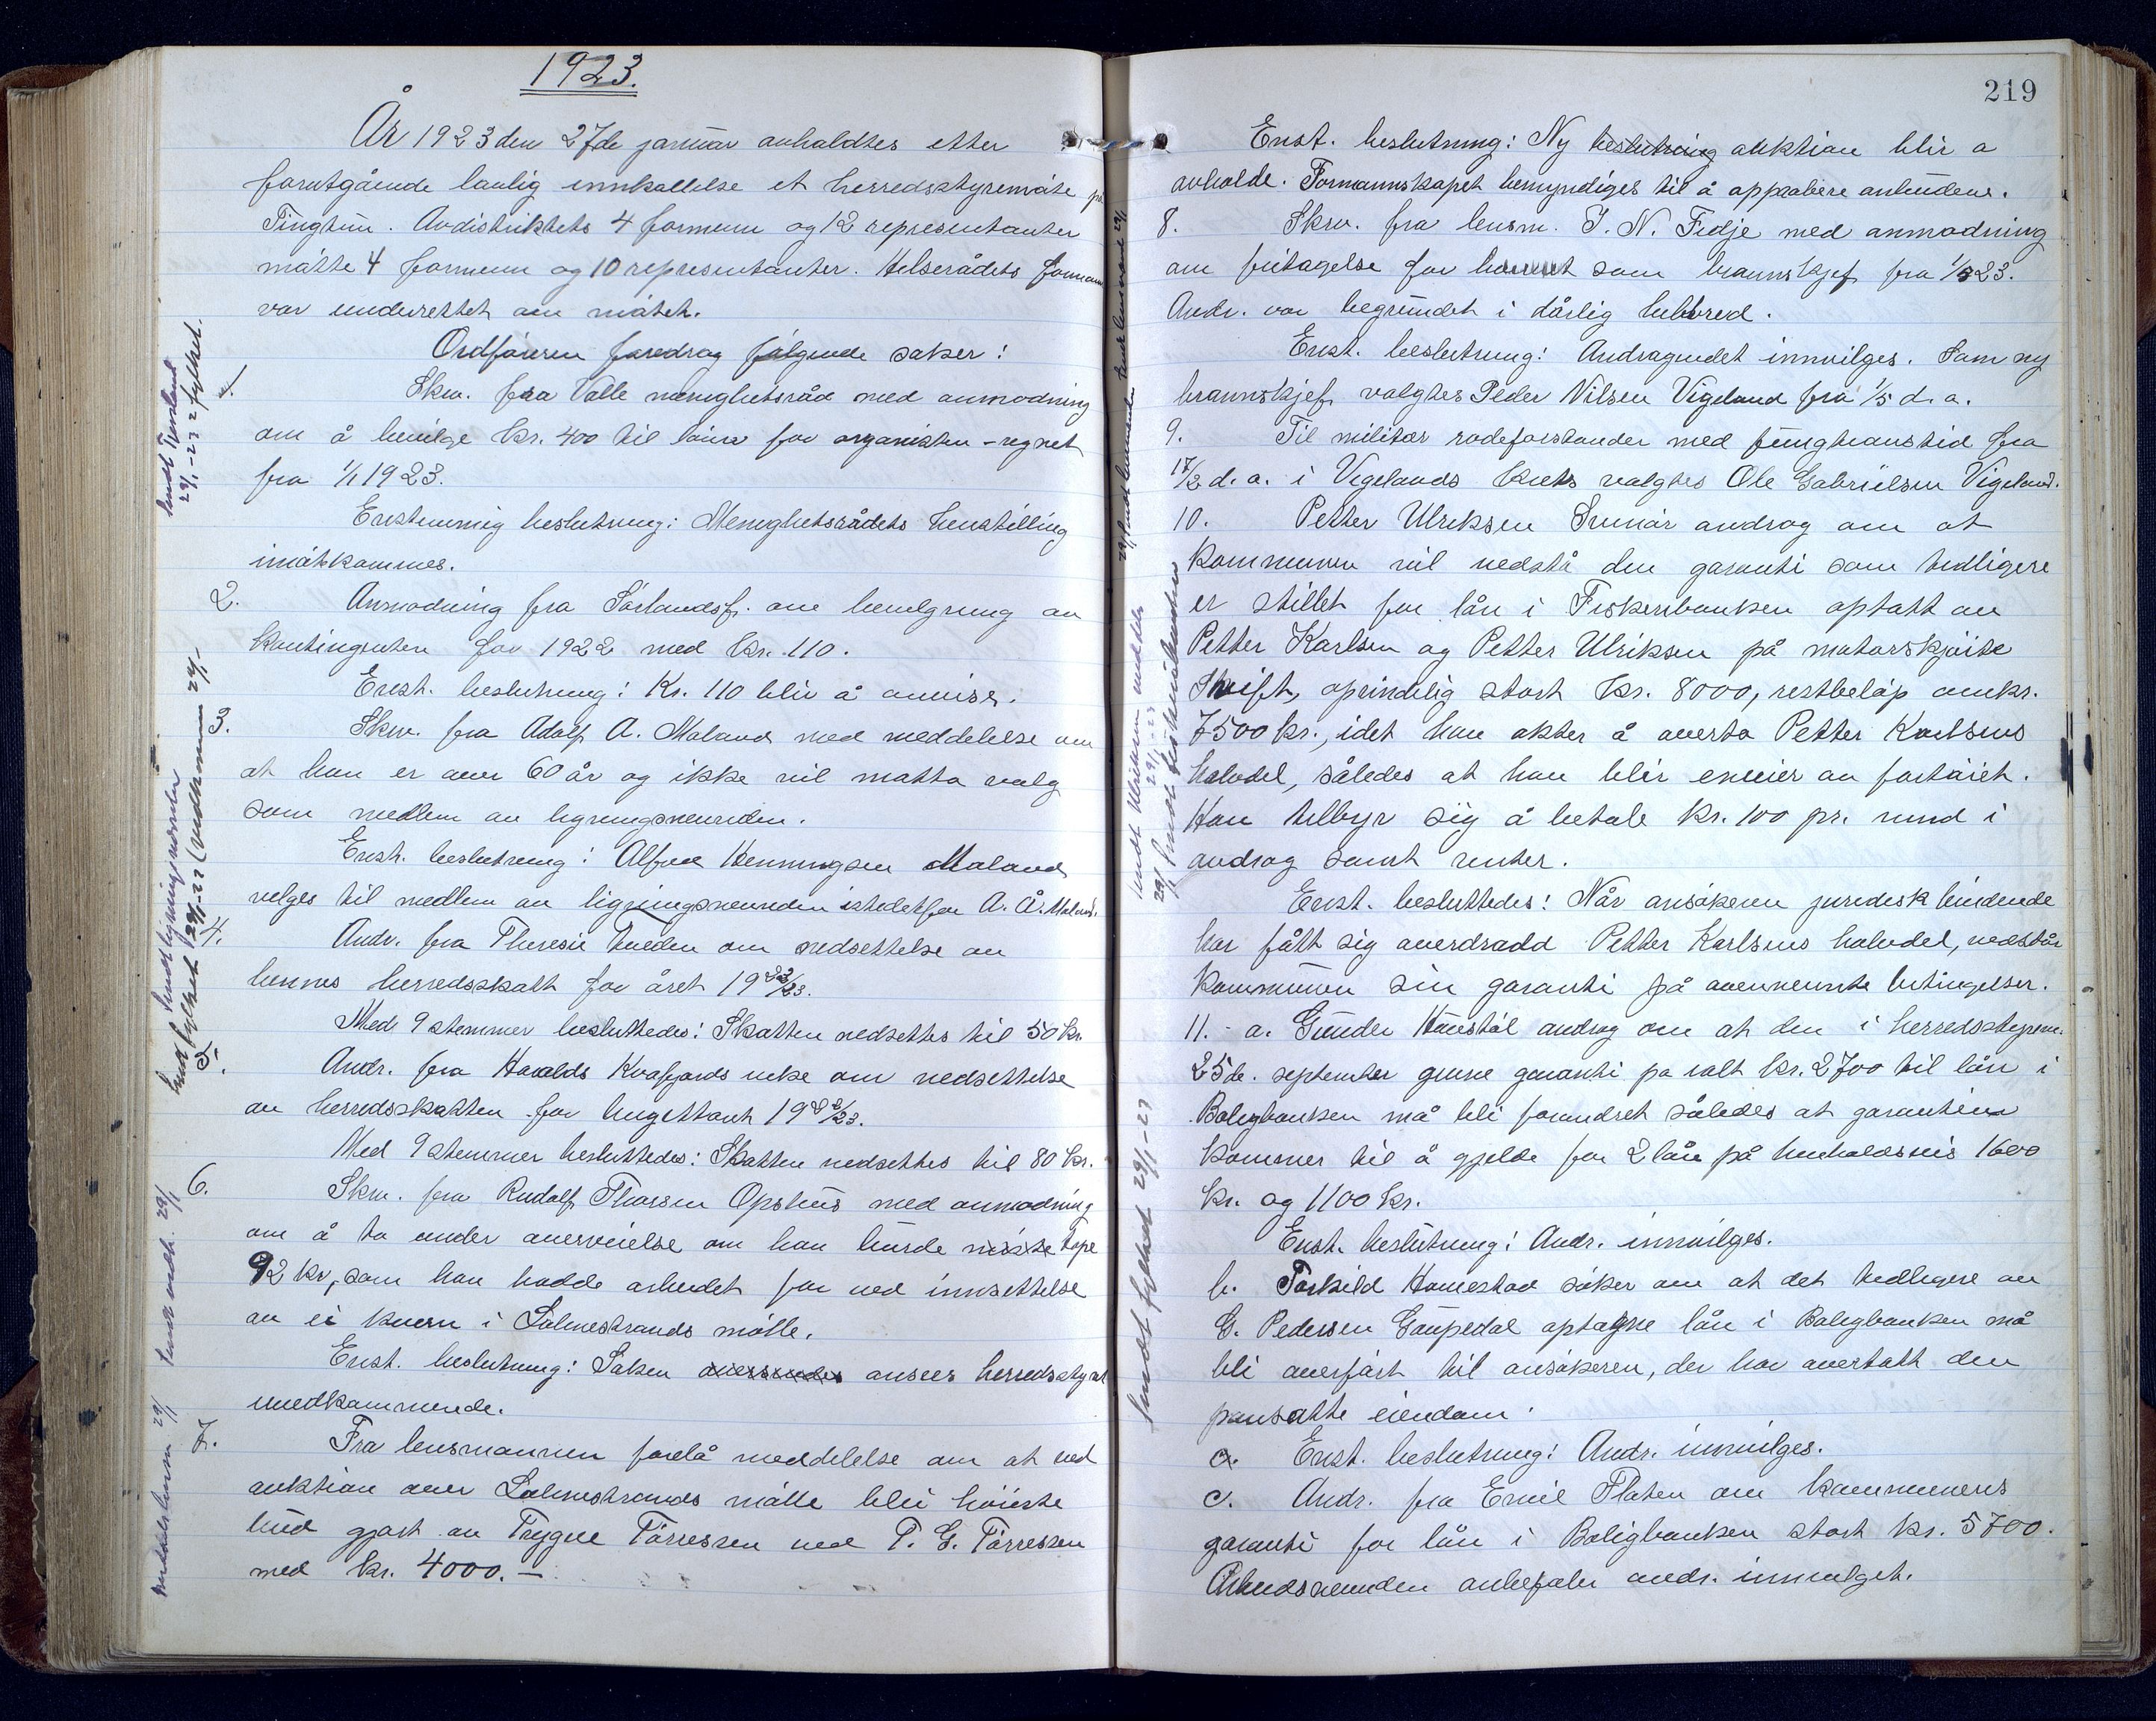 1923.
År 1923 den 27de januar avholdtes etter
forutgående lovlig innkallelse et herredsstyremöte på
Tinghun. Avdistriktets 4 formenn og 12 representanter
mötte 4 formenn og 10 representanter. Helserådets formann
var underrettet om mötet.
Ordföreren foredrog fölgende saker:
1. Skrv. fra Valle menighetsråd med anmodning
om å bevilge kr. 400 til lönn for organisten - regnet
fra 1/1 1923.
Enstemmig beslutning: Menighetsrådets henstilling
imötkommes.
2. Anmodning fra Sörlandsf. om bevilgning av
kontingenten for 1922 med kr. 110.
Enst. beslutning: Kr. 110 blir å anvise.
3. Skrv. fra Adolf A. Maland med meddelelse om
at han er over 60 år og ikke vil motta valg
som medlem av ligningsnevnden.
Enst. beslutning: Alfred Henningsen Maland
velges til medlem av ligningsnevnden istedetfor A. A. Maland.
4. Andr. fra Theresie Tveden om nedsettelse av
hennes herredsskatt for året 1922/23.
Med 9 stemmer besluttedes: Skatten nedsettes til 50 kr.
5. Andr. fra Haralds Kvafjords enke om nedsettelse
av herredsskatten for budgettåret 1922/23.
Med 9 stemmer besluttedes: Skatten nedsettes til 80 kr.
6. Skrv. fra Rudolf Thorsen Opshus med anmodning
om å ta under overveielse om han burde miste tape
92 kr, som han hadde arbeidet for ved innsettelse
av ei kvern i Salmestrands mölle.
Enst. beslutning: Saken oversendes ansees herredsstyret
uvedkommende.
7. Fra lensmannen forelå meddelelse om at ved
auktion over Salmestrands mölle blev höieste
bud gjort av Trygve Törressen ved P. G. Törressen
med kr. 4000. —
219
Enst. beslutning: Ny beslutning auktion blir a
avholde. Formannskapet bemyndiges til å approbere anbudene.
8. Skrv. fra lensm. J. N. Fidje med anmodning
om fritagelse for hvervet som brannskjef fra 1/5 23.
Andr. var begrundet i dårlig helbred.
Enst. beslutning: Andragendet innvilges. Som ny
brannskjef valgtes Peder Nilsen Vigeland fra 1/5 d. a.
9. Til militær rodeforstander med fungtionstid fra
17/2 d. a. i Vigelands krets valgtes Ole Gabrielsen Vigeland.
10. Petter Ulriksen Svinör androg om at
kommunen vil vedstå den garanti som tidligere
er stillet for lån i Fiskeribanken optatt av
Petter Karlsen og Petter Ulriksen på motorskjöite
Swift, oprindelig stort kr. 8000, restbelöp omkr.
7500 kr., idet han akter å overta Petter Karlsens
halvdel, således at han blir eneeier av fartöiet.
Han tilbyr sig å betale kr. 100 pr. mnd i
avdrag samt renter.
Enst. besluttedes: Når ansökeren juridisk bindende
har fått sig overdradd Petter Karlsens halvdel, vedstår
kommunen sin garanti på ovennevnte betingelser.
11. - a. Gunder Haustöl androg om at den i herredsstyrem.
25de. september givne garanti på ialt kr. 2700 til lån i
Boligbanken må bli forandret således at garantien
kommer til å gjelde for 2 lån på henholdsvis 1600
kr. og 1100 kr.
Enst. beslutning: Andr. innvilges.
b. Torkild Homestad söker om at det tidligere av
G. Pedersen Gaupedal optagne lån i Boligbanken må
bli overfört til ansökeren, der har overtatt den
pansatte eiendom.
c. Enst. beslutning: Andr. innvilges.
c. Andr. fra Emil Platen om kommunens
garanti for lån i Boligbanken stort kr. 5700.
Arbeidsnevnden anbefaler andr. innvilget.